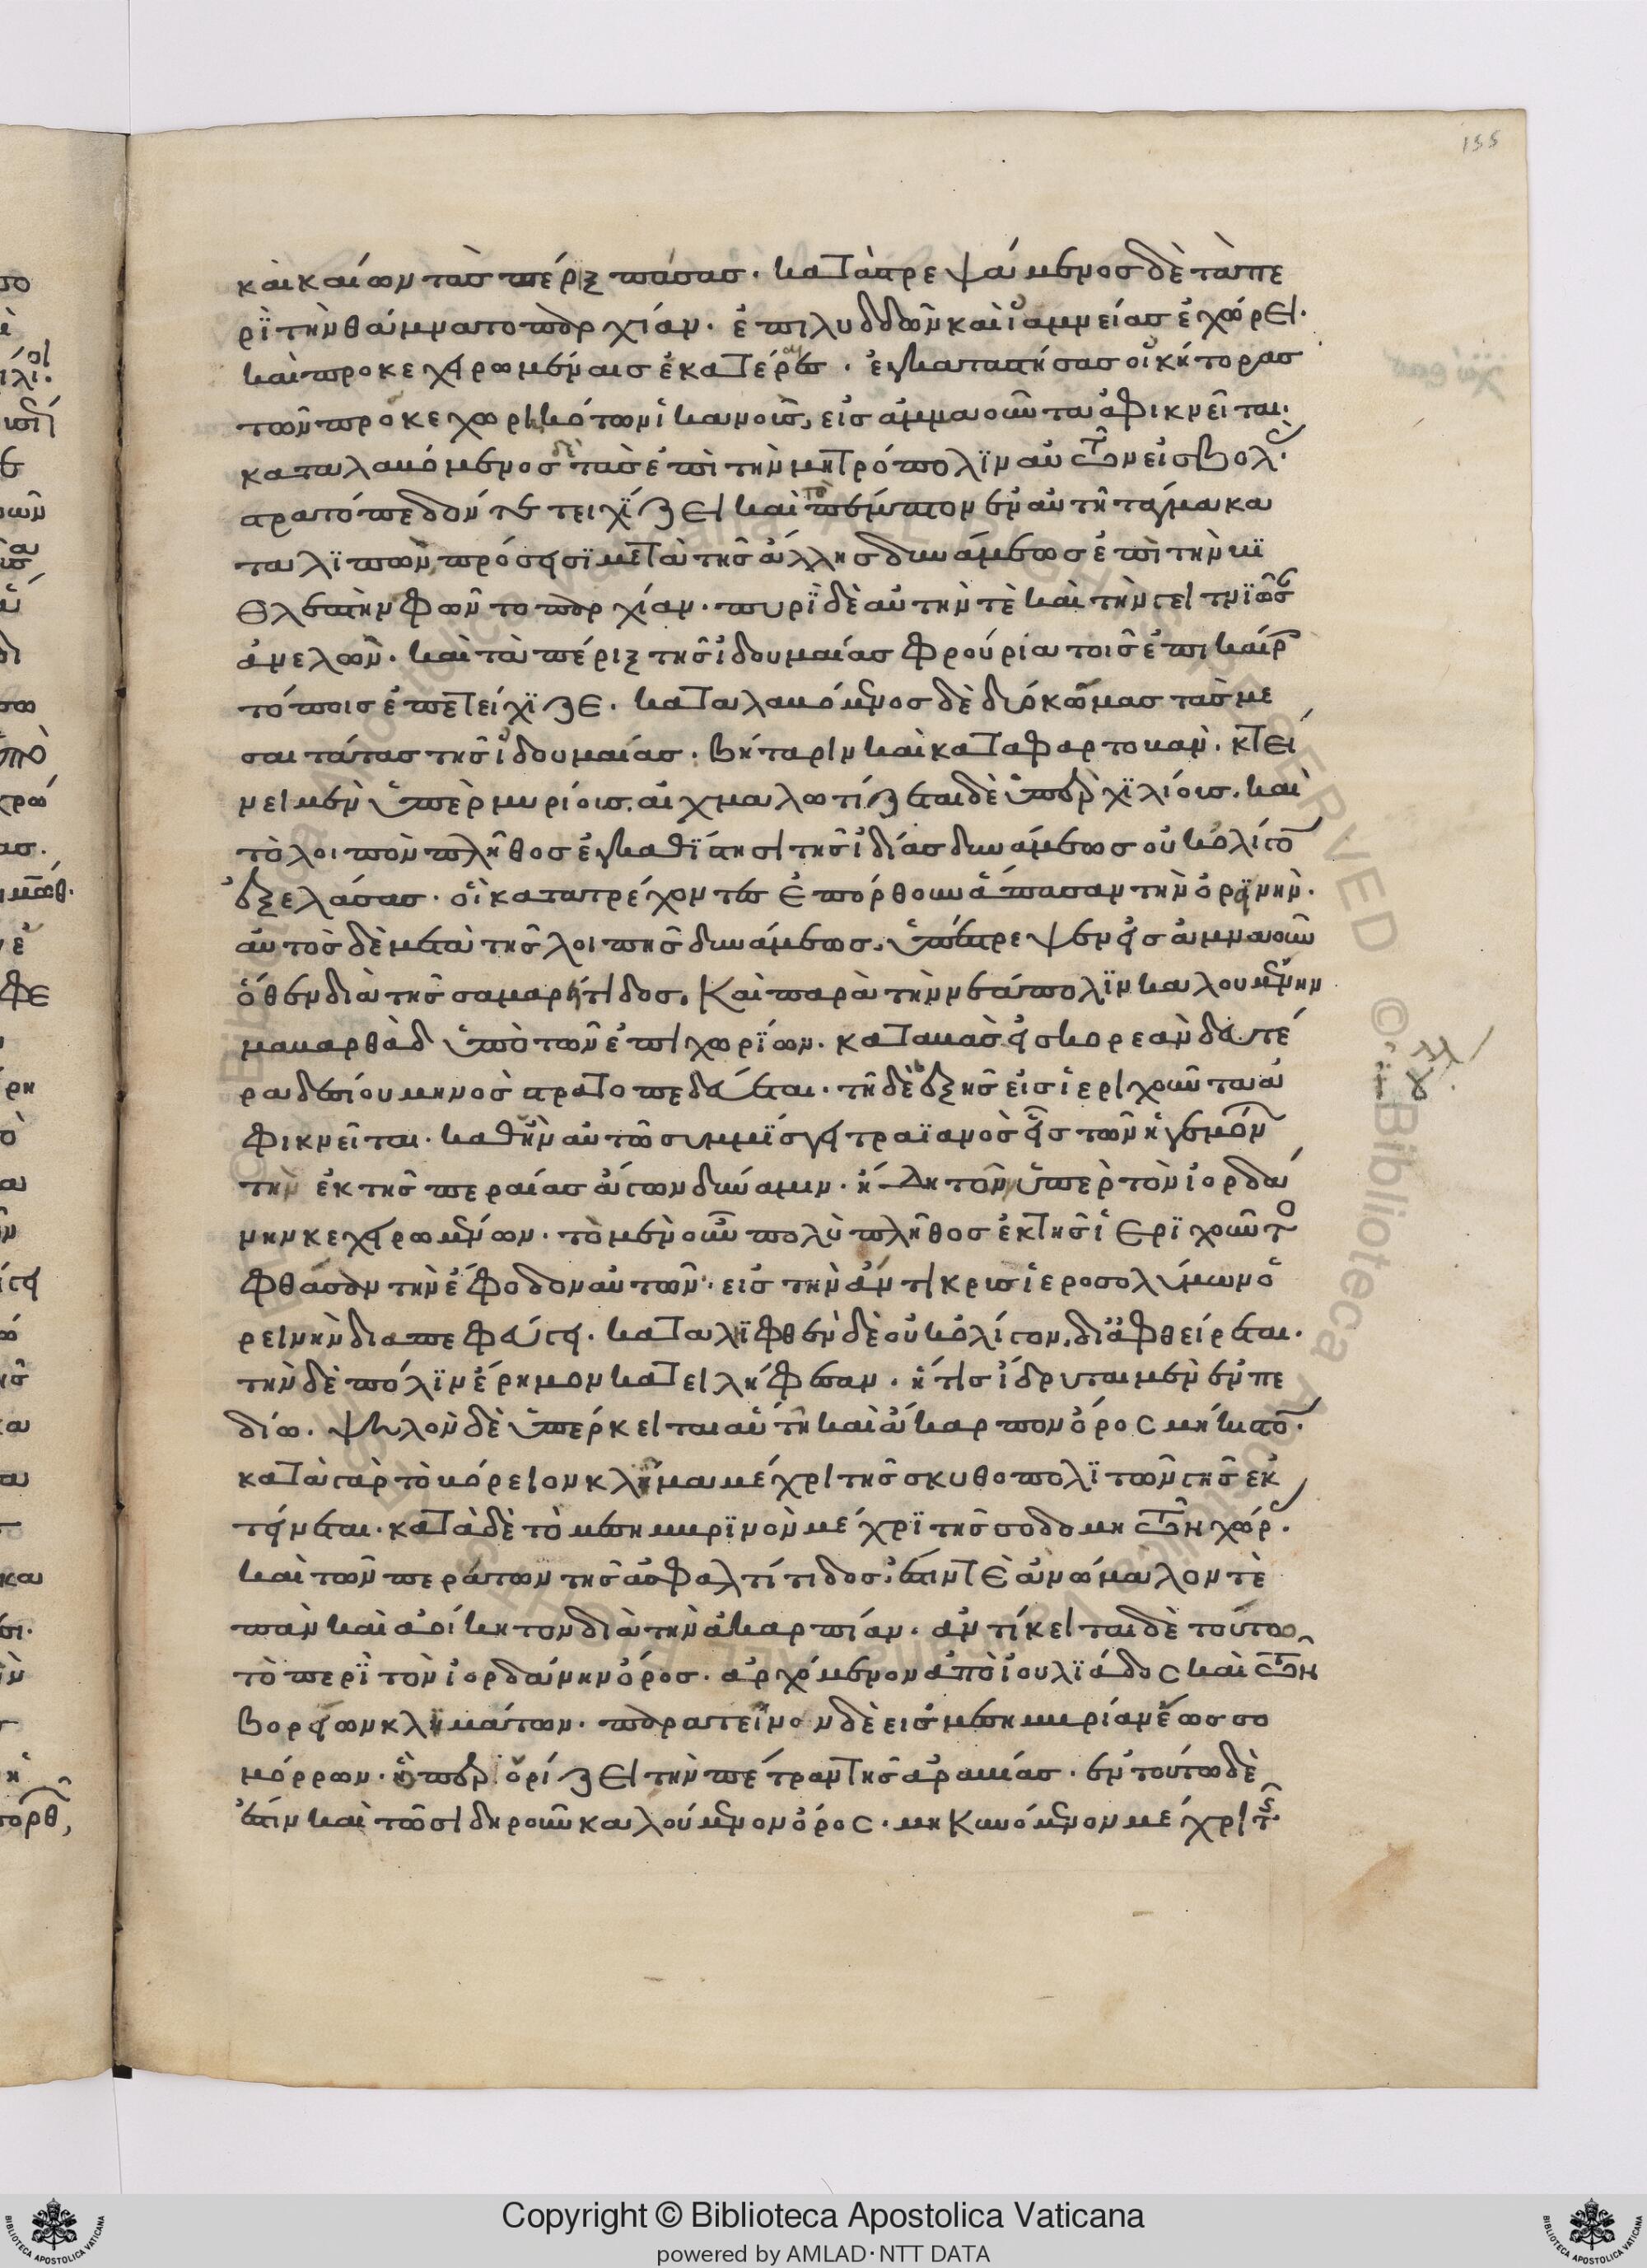 155
καὶ καίων τὰσ πέριξ πάσασ. καταστρεψάμενοσ δὲ τὰ πε
ρὶ τὴν θάμνα τοπαρχίαν. ἐπὶ λύδδων καὶ ἰαμνείασ ἐχώρει.
καὶ προκεχειρωμέναισ ἑκατέραισ. ἐγκαταστήσασ οἰκήτορασ
τῶν προκεχωρηκότων ἱκανοὺσ, εἰσ ἀμμαοῦντα ἀφικνεῖται.
καταλαβόμενοσ δὲ τὰσ ἐπὶ τὴν μητρόπολιν αὐτῶν εἰσβολ.
στρατόπεδόν τε τειχίζει καὶ τὸ πέμπτον ἐν αὐτῆ τάγμα κα
ταλιπὼν, πρόσεισι μετὰ τῆσ ἄλλησ δυνάμεωσ ἐπὶ τὴν βε
θλεπτηνφῶν τοπαρχίαν. πυρὶ δὲ αὐτήν τε καὶ τὴν γειτνιῶσ
ἀνελὼν. καὶ τὰ πέριξ τῆσ ἰδουμαίασ φρούρια τοῖσ ἐπικαίρ
τόποισ ἐπετείχιζε. καταλαβόμενοσ δὲ δύο κώμασ τὰσ με
σαιτάτασ τῆσ ἰδουμαίασ. βήταριν καὶ καταφαρτοβάν. κτεί
νει μὲν ὑπὲρ μυρίουσ. αἰχμαλωτίζεται δὲ ὑπὲρ χιλίουσ. καὶ
τὸ λοιπὸν πλῆθοσ ἐγκαθίστησι τῆσ ἰδίασ δυνάμεωσ οὐκ ὀλίγο
ἐξελάσασ. οἳ κατατρέχοντεσ ἐπόρθουν ἅπασαν τὴν ὀρεινήν.
αὐτὸσ δὲ μετὰ τῆσ λοιπῆσ δυνάμεωσ, ὑπέστρεψεν εἰσ ἀμμαοῦν
ὅθεν διὰ τῆσ σαμαρείτιδοσ. Καὶ παρὰ τὴν νεάπολιν καλουμένην
μαβαρθὰδ ὑπὸ τῶν ἐπιχωρίων. καταβὰσ εἰσ κορεὰν δευτέ
ρα δεσίου μηνὸσ στρατοπεδεύεται. τῆ δὲ ἑξῆσ εἰσ ἱεριχοῦντα ἀ
φικνεῖται. καθ' ἣν αὐτῶ συμμίσγει τραϊανὸσ εἷσ τῶν ἡγεμόν
τὴν ἐκ τῆσ περαίασ ἄγων δύναμιν. ἤδη τῶν ὑπὲρ τὸν ἰορδά
νην κεχειρωμένων. τὸ μὲν οὖν πολὺ πλῆθοσ ἐκ τῆσ ἱεριχοῦντο
φθάσαν τὴν ἔφοδον αὐτῶν. εἰσ τὴν ἄντικρυσ ἱεροσολύμων ὀ
ρεινὴν διαπεφεύγει. καταλιφθὲν δὲ οὐκ ὀλίγον. διαφθείρεται.
τὴν δὲ πόλιν ἔρημον κατειλήφεσαν. ἥτισ ἵδρυται μὲν ἐν πε
δίω. ψιλὸν δὲ ὑπέρκειται αὐτῆ καὶ ἄκαρπον ὄροσ μήκιστο.
κατὰ γὰρ τὸ βόρειον κλίμα μέχρι τῆσ σκυθοπολιτῶν γῆσ ἐκ
τείνεται. κατὰ δὲ τὸ μεσημβρινὸν μέχρι τῆσ σοδομητῶν χώρ.
καὶ τῶν περάτων τῆσ ἀσφαλτίτιδοσ. ἔστιν τε ἀνώμαλόν τε
πᾶν καὶ ἀοίκητον διὰ τὴν ἀκαρπίαν. ἀντίκειται δὲ τούτω
τὸ περὶ τὸν ἰορδάνην ὄροσ. ἀρχόμενον ἀπὸ ἰουλιάδοσ καὶ τῶν
βορείων κλιμάτων. παρατεῖνον δὲ εἰσ μεσημβρίαν ἕωσ σο
μόρρων. ἥπερ ὁρίζει τὴν πέτραν τῆσ ἀραβίασ. ἐν τούτω δὲ
ἐστὶν καὶ τὸ σιδηροῦν καλούμενον ὄροσ. μηκυνόμενον μέχρι τῆσ